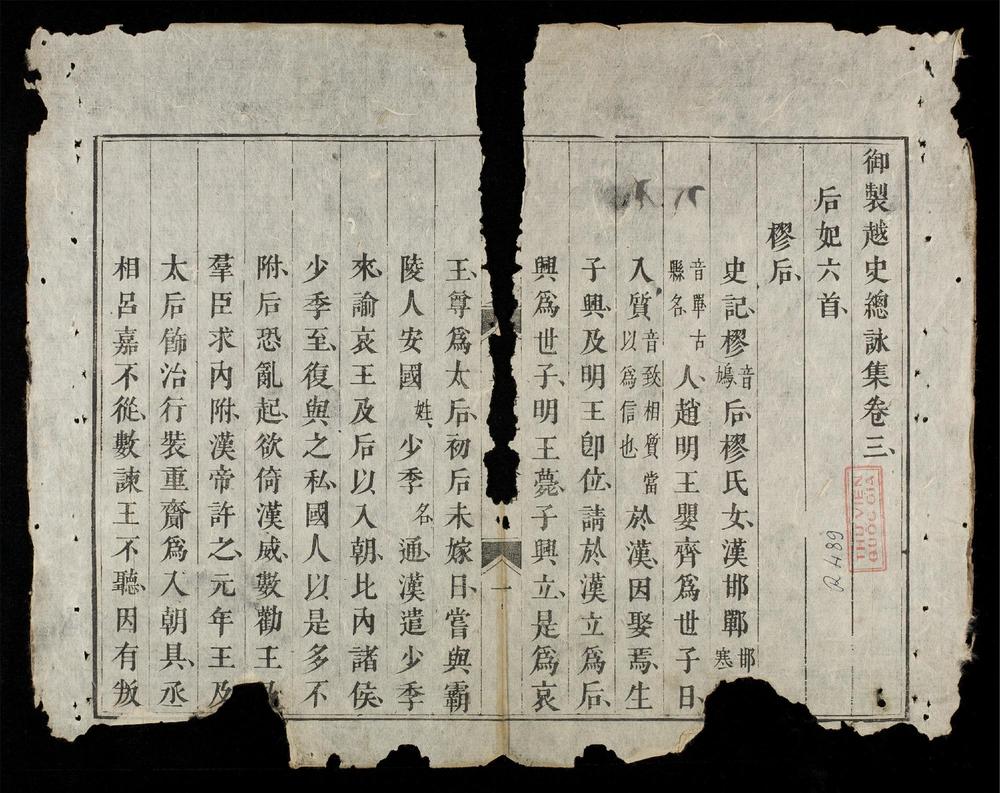 御製越史總詠集卷三、
后妃六首、
樛后、
史記、樛音鳩后、樛氏女、漢邯鄲邯寒
音單古縣名人、趙明王嬰齊爲世子日、
入質音致相質當以爲信也於漢、因娶焉、生
子興、及明王卽位、請於漢立爲后、
興爲世子、明王薨、子興立、是爲哀
王、尊爲太后、初后未嫁日、嘗與霸
陵人安國姓、少季名、通、漢遣少季
來、諭哀王及后以入朝、比內諸侯、
少季至、復與之私、國人以是多不
附、后恐亂起、欲倚漢威、數勸王
羣臣求內附、漢帝許之、元年王及
太后飾治行裝重齎爲入朝具、丞
相呂嘉不從、數諫王不聽、因有叛
一
THƯ VIỆN
QUỐC GIA
R 489